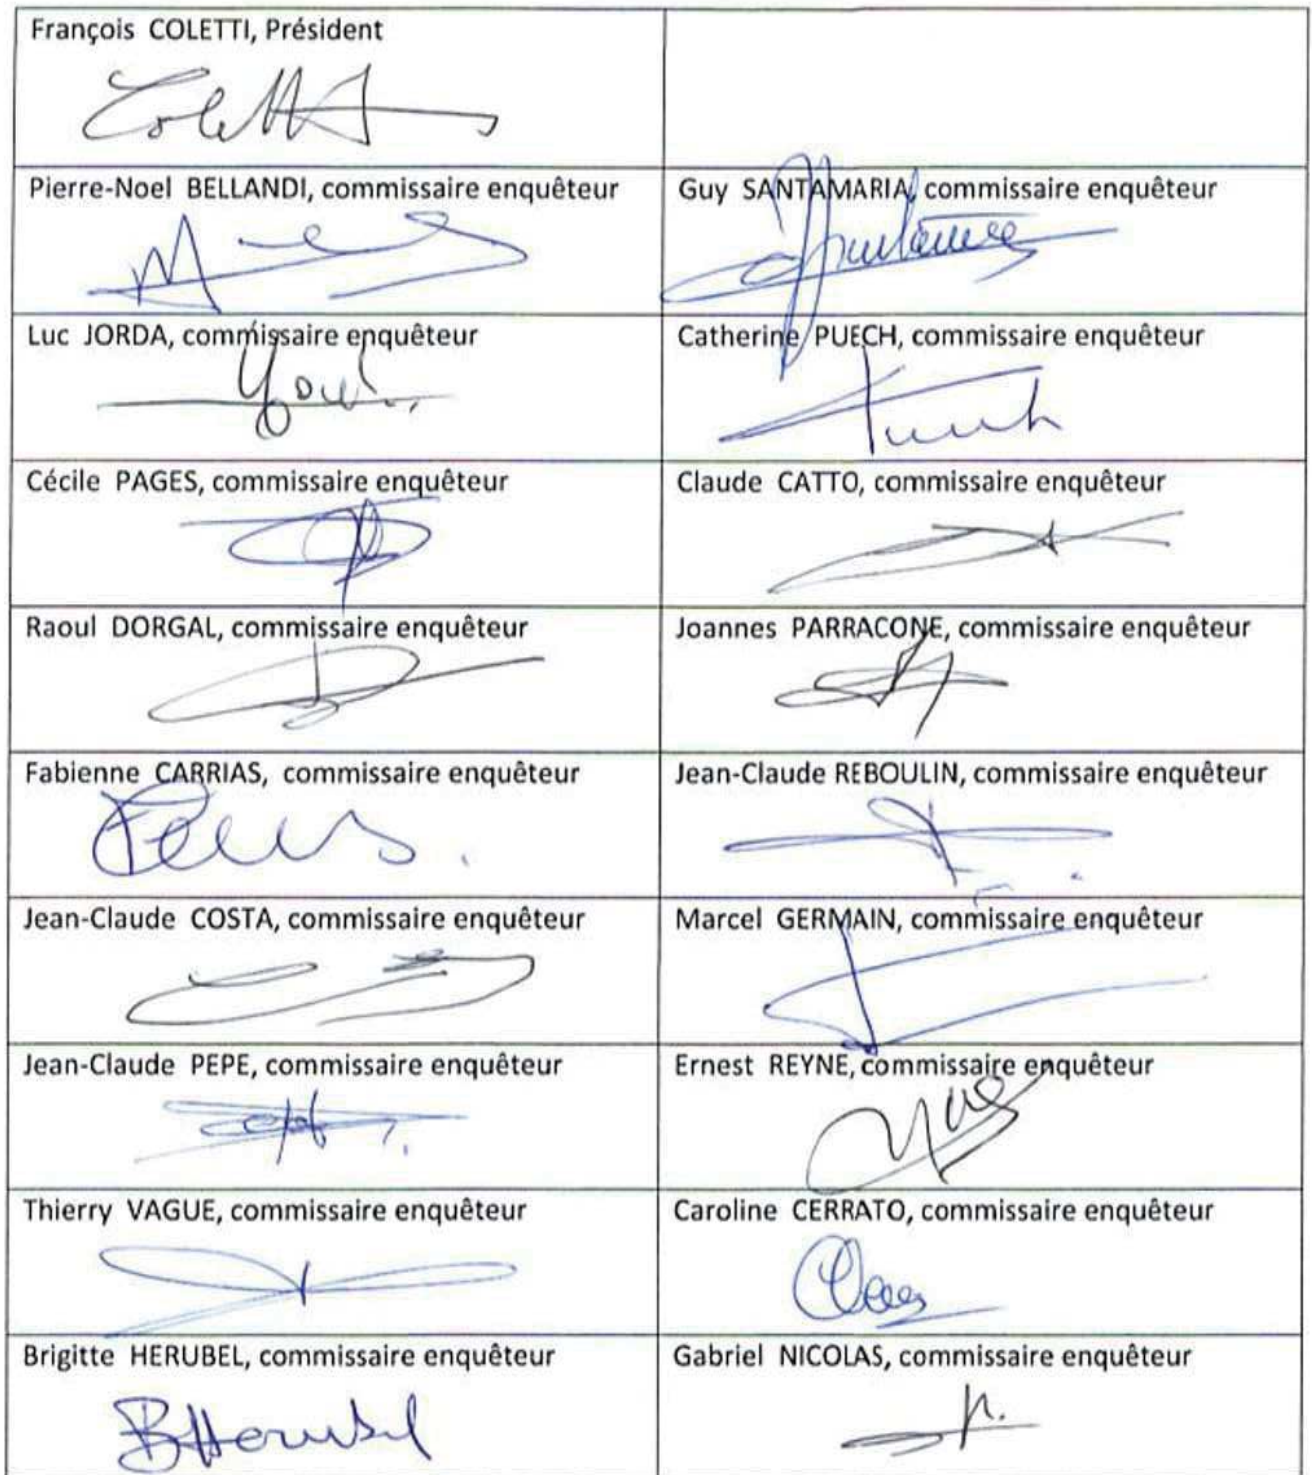 François COLETTI, Président
Coletti
Pierre-Noel BELLANDI, commissaire enquêteur
Guy SANTAMARIA, commissaire enquêteur
Luc JORDA, commissaire enquêteur
Catherine PUECH, commissaire enquêteur
Puech
Cécile PAGES, commissaire enquêteur
Claude CATTO, commissaire enquêteur
Raoul DORGAL, commissaire enquêteur
Joannes PARRACONE, commissaire enquêteur
Fabienne CARRIAS, commissaire enquêteur
Jean-Claude REBOULIN, commissaire enquêteur
Jean-Claude COSTA, commissaire enquêteur
Marcel GERMAIN, commissaire enquêteur
Jean-Claude PEPE, commissaire enquêteur
Ernest REYNE, commissaire enquêteur
Thierry VAGUE, commissaire enquêteur
Caroline CERRATO, commissaire enquêteur
Brigitte HERUBEL, commissaire enquêteur
Gabriel NICOLAS, commissaire enquêteur
BHerubel